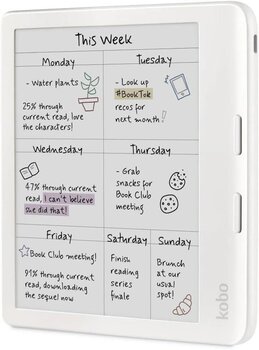 This Week
Monday
- Water plants
25% through
current read, love
the characters!
Tuesday
- Look up
#BookTok
recos for
next month!
Wednesday
47% through current
read, I can't believe
she did that!
Thursday
- Grab
snacks for
Book Club
meeting!
Friday
Book Club meeting!
91% through current
read, downloading
the sequel now
Saturday
Finish
reading
series
finale
Sunday
Brunch
at our
usual
spot!
kobo